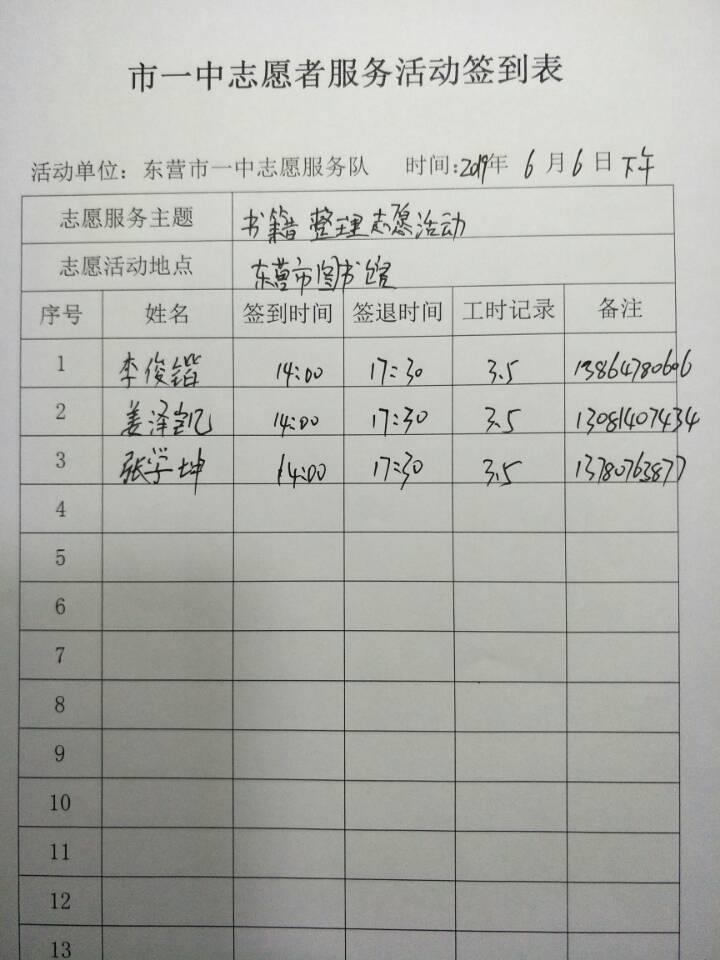 市一中志愿者服务活动签到表
活动单位：东营市一中志愿服务队 时间：2019年 6 月 6 日 下午
志愿服务主题 书籍整理志愿活动
志愿活动地点 东营市图书馆
序号 姓名 签到时间 签退时间 工时记录 备注
1 李俊锴 14:00 17:30 3.5 13864780606
2 姜泽凯 14:00 17:30 3.5 13081407434
3 张学坤 14:00 17:30 3.5 13780763877
4
5
6
7
8
9
10
11
12
13